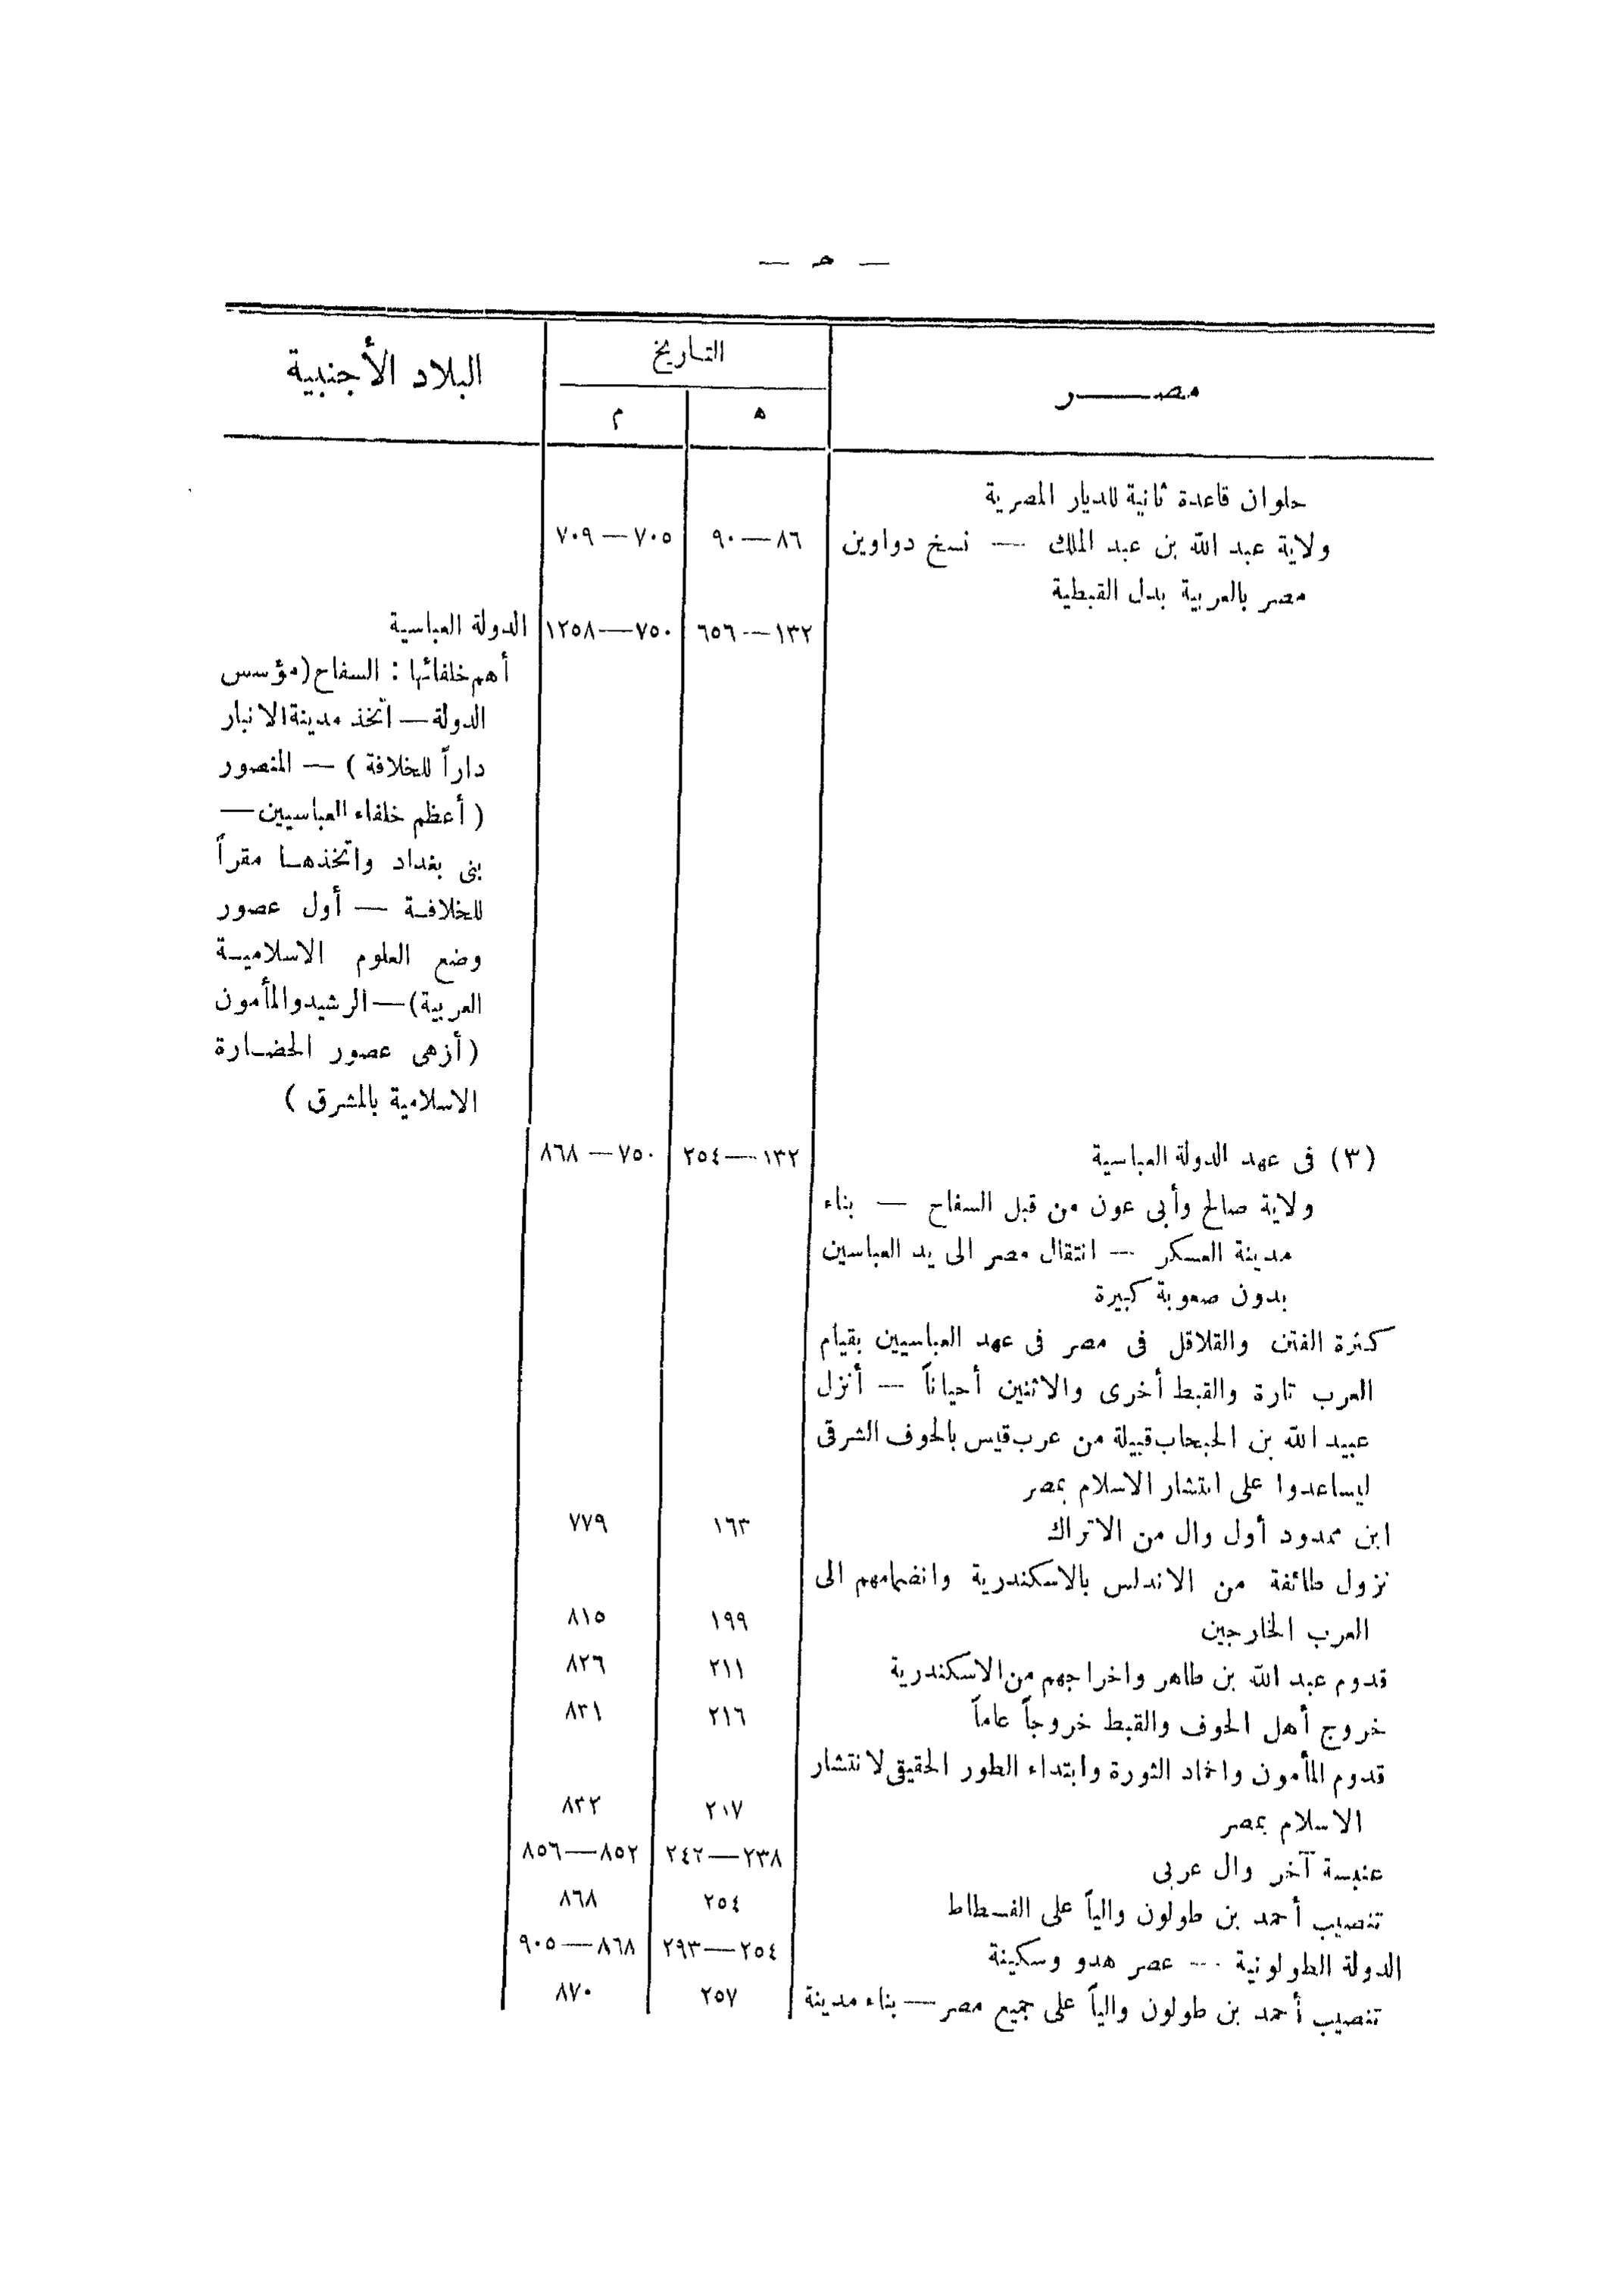 — حـ —
مصـــــر
التاريخ
البلاد الأجنبية
ه
م
حلوان قاعدة ثانية للديار المصرية
ولاية عبد الله بن عبد الملك — نسخ دواوين
٨٦—٩٠
٧٠٥—٧٠٩
مصر بالعربية بدل القبطية
١٣٢—٦٥٦
٧٥٠—١٢٥٨
الدولة العباسية
أهم خلفائها : السفاح (مؤسس
الدولة — اتخذ مدينة الانبار
داراً للخلافة ) — المنصور
( أعظم خلفاء العباسيين —
بنى بغداد واتخذهـا مقراً
للخلافـة — أول عصور
وضع العلوم الاسلاميـة
العربية) — الرشيد والمأمون
( أزهى عصور الحضـارة
الاسلامية بالمشرق )
(٣) فى عهد الدولة العباسية
١٣٢—٢٥٤
٧٥٠—٨٦٨
ولاية صالح وأبى عون من قبل السفاح — بناء
مدينة العسكر — انتقال مصر الى يد العباسين
بدون صعوبة كبيرة
كثرة الفتن والقلاقل فى مصر فى عهد العباسيين بقيام
العرب تارة والقبط أخرى والاثنين أحياناً — أنزل
عبيد الله بن الحبحاب قبيلة من عرب قيس بالحوف الشرقى
ليساعدوا على انتشار الاسلام بمصر
ابن ممدود أول وال من الاتراك
١٦٣
٧٧٩
نزول طائفة من الاندلس بالاسكندرية وانضمامهم الى
العرب الخارجين
١٩٩
٨١٥
قدوم عبد الله بن طاهر واخراجهم من الاسكندرية
٢١١
٨٢٦
خروج أهل الحوف والقبط خروجاً عاماً
٢١٦
٨٣١
قدوم المأمون واخماد الثورة وابتداء الطور الحقيقى لانتشار
الاسلام بمصر
٢١٧
٨٣٢
عنبسة آخر وال عربى
٢٣٨—٢٤٢
٨٥٢—٨٥٦
تنصيب أحمد بن طولون والياً على الفسطاط
٢٥٤
٨٦٨
الدولة الطولونية — عصر هدو وسكينة
٢٥٤—٢٩٣
٨٦٨—٩٠٥
تنصيب أحمد بن طولون والياً على جميع مصر — بناء مدينة
٢٥٧
٨٧٠